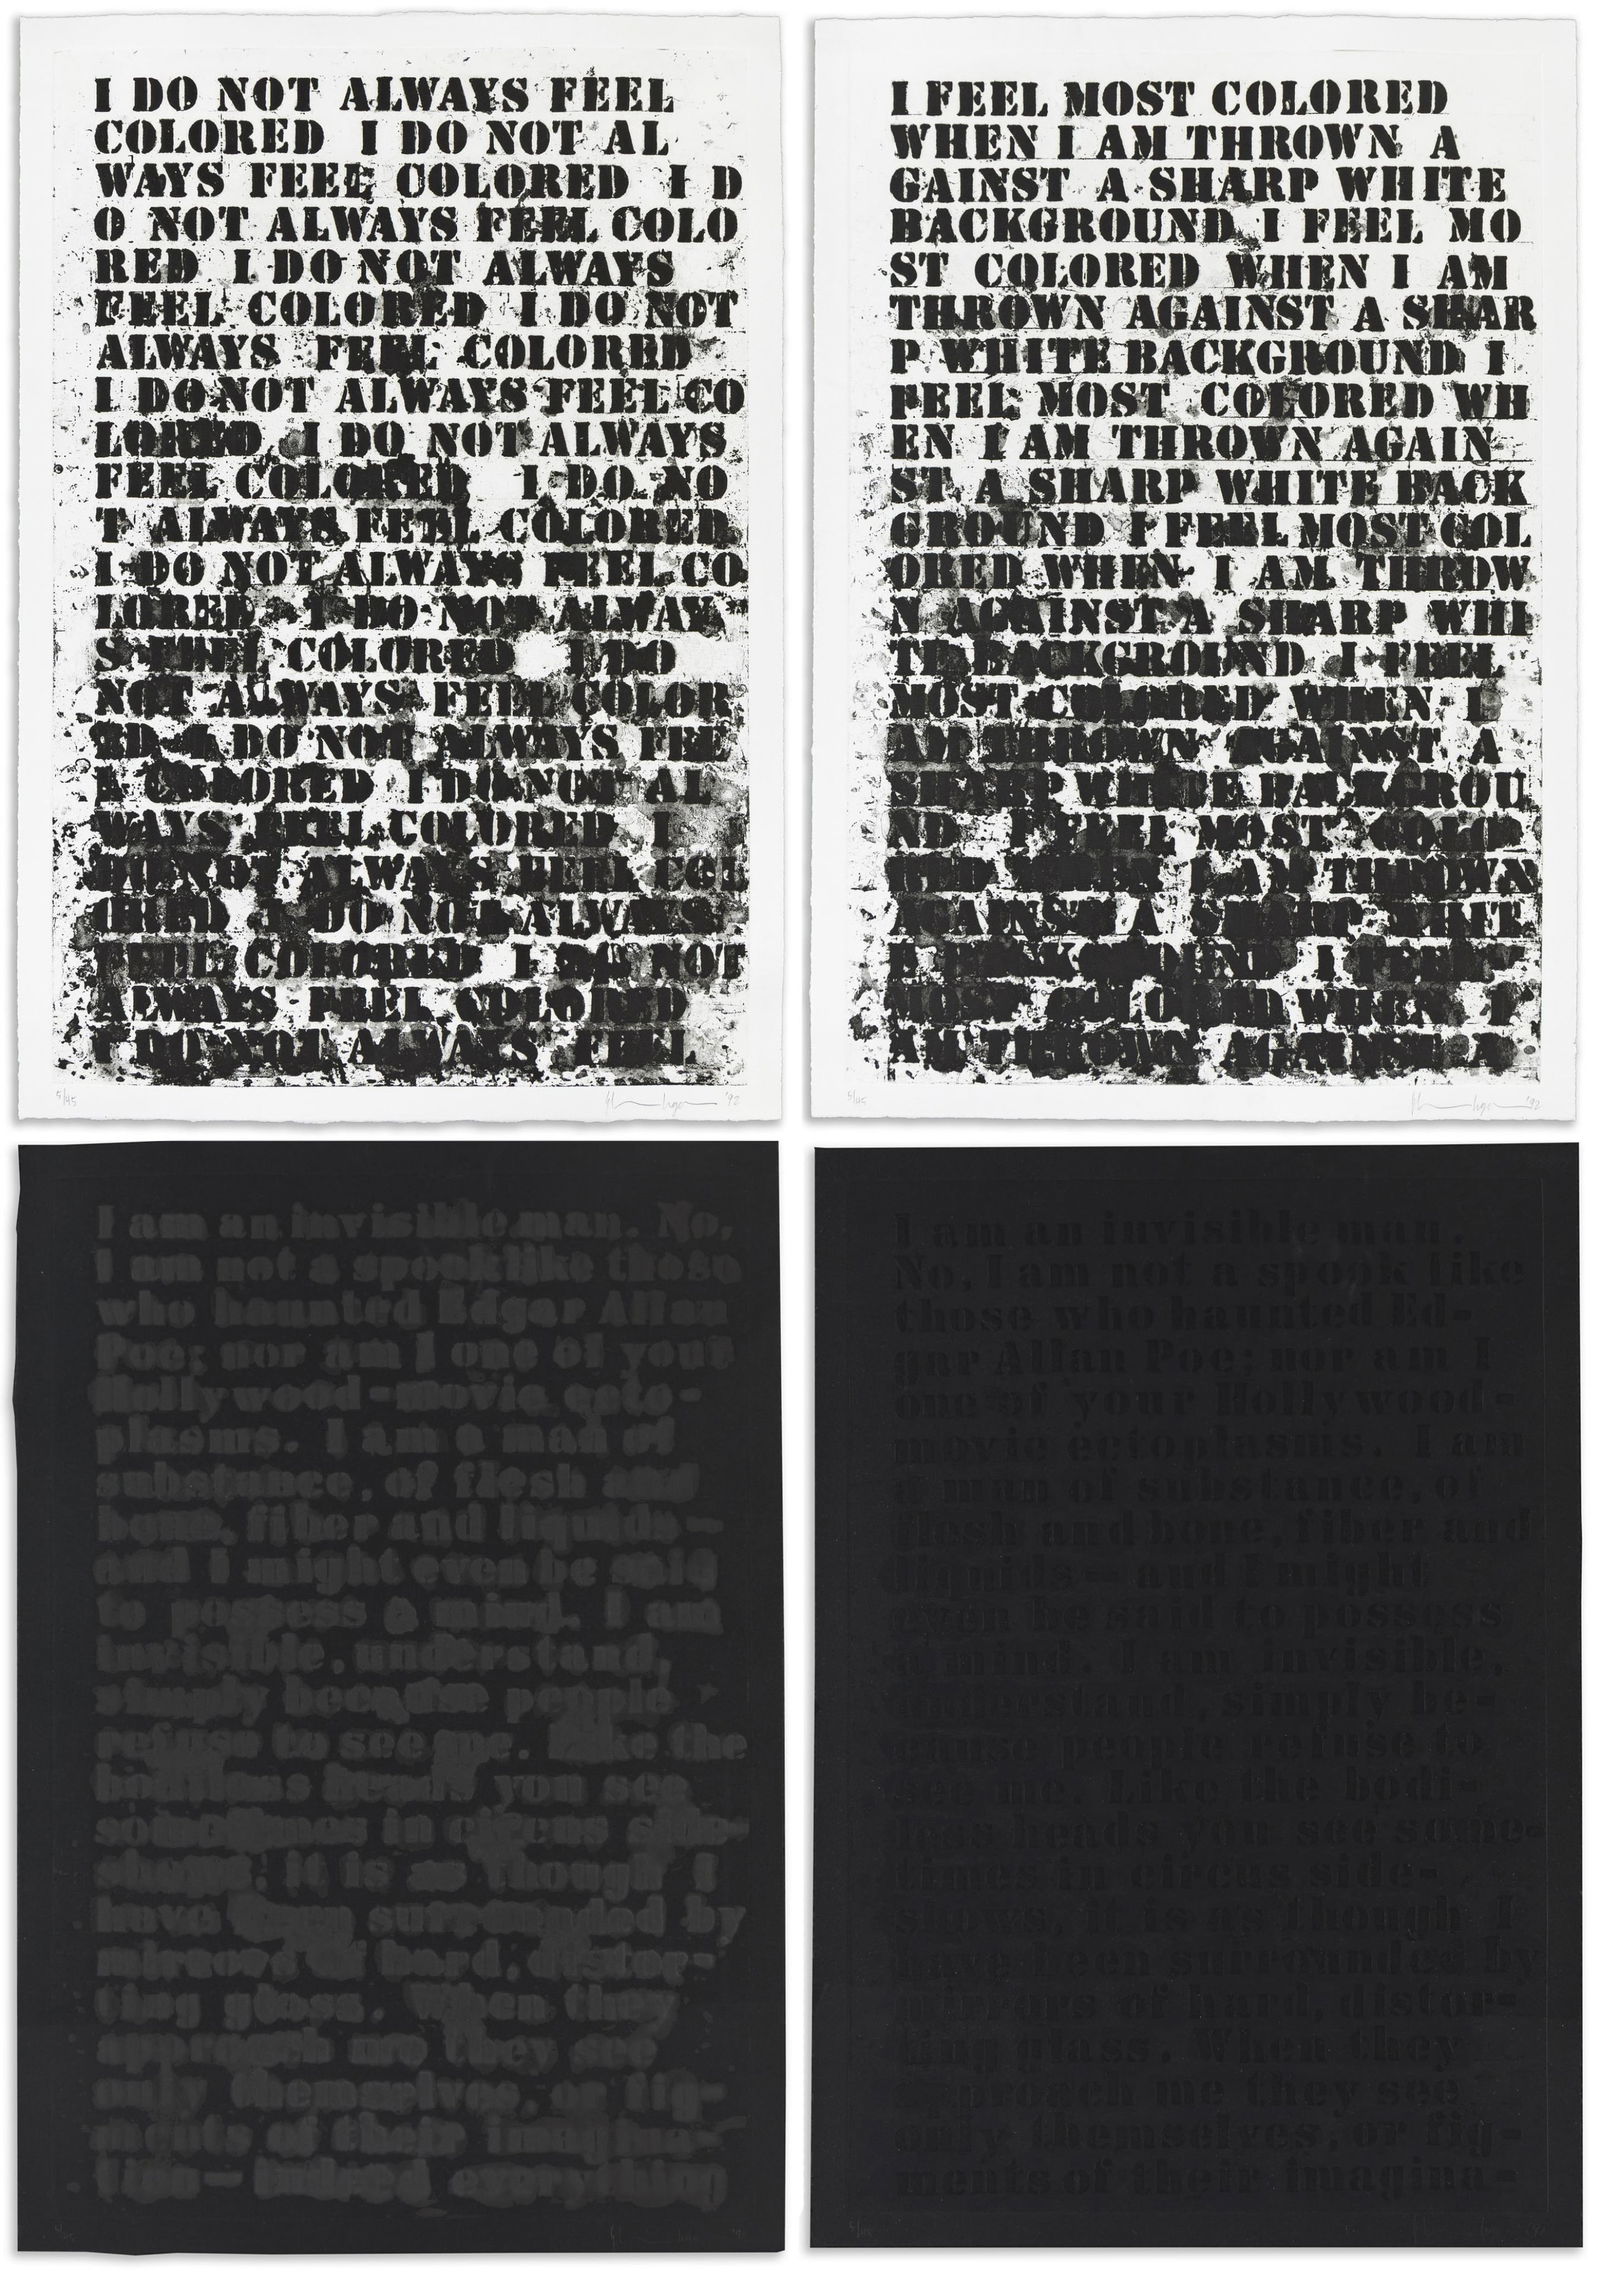 I DO NOT ALWAYS FEEL
COLORED I DO NOT AL
WAYS FEEL COLORED I D
O NOT ALWAYS FEEL COLO
RED I DO NOT ALWAYS
FEEL COLORED I DO NOT
ALWAYS FEEL COLORED
I DO NOT ALWAYS FEEL CO
LORED I DO NOT ALWAYS
FEEL COLORED I DO NO
T ALWAYS FEEL COLORED
I DO NOT ALWAYS FEEL CO
LORED I DO NOT ALWAY
S FEEL COLORED I DO
NOT ALWAYS FEEL COLOR
ED I DO NOT ALWAYS FEE
L COLORED I DO NOT AL
WAYS FEEL COLORED I
DO NOT ALWAYS FEEL COL
ORED I DO NOT ALWAYS
FEEL COLORED I DO NOT
ALWAYS FEEL COLORED
I DO NOT ALWAYS FEEL
5/45 '92
I FEEL MOST COLORED
WHEN I AM THROWN A
GAINST A SHARP WHITE
BACKGROUND I FEEL MO
ST COLORED WHEN I AM
THROWN AGAINST A SHAR
P WHITE BACKGROUND I
FEEL MOST COLORED WH
EN I AM THROWN AGAIN
ST A SHARP WHITE BACK
GROUND I FEEL MOST COL
ORED WHEN I AM THROW
N AGAINST A SHARP WHI
TE BACKGROUND I FEEL
MOST COLORED WHEN I
AM THROWN AGAINST A
SHARP WHITE BACKGROU
ND I FEEL MOST COLO
RED WHEN I AM THROWN
AGAINST A SHARP WHITE
BACKGROUND I FEEL
MOST COLORED WHEN I
AM THROWN AGAINST A
5/45 '92
I am an invisible man. No,
I am not a spook like those
who haunted Edgar Allan
Poe; nor am I one of your
Hollywood-movie ecto-
plasms. I am a man of
substance, of flesh and
bone, fiber and liquids—
and I might even be said
to possess a mind. I am
invisible, understand,
simply because people
refuse to see me. Like the
bodiless heads you see
sometimes in circus side-
shows, it is as though I
have been surrounded by
mirrors of hard, distor-
ting glass. When they
approach me they see
only themselves, or fig-
ments of their imagina-
tion— indeed everything
I am an invisible man.
No, I am not a spook like
those who haunted Ed-
gar Allan Poe; nor am I
one of your Hollywood-
movie ectoplasms. I am
a man of substance, of
flesh and bone, fiber and
liquids— and I might
even be said to possess
a mind. I am invisible,
understand, simply be-
cause people refuse to
see me. Like the bodi-
less heads you see some-
times in circus side-
shows, it is as though I
have been surrounded by
mirrors of hard, distor-
ting glass. When they
approach me they see
only themselves, or fig-
ments of their imagina-